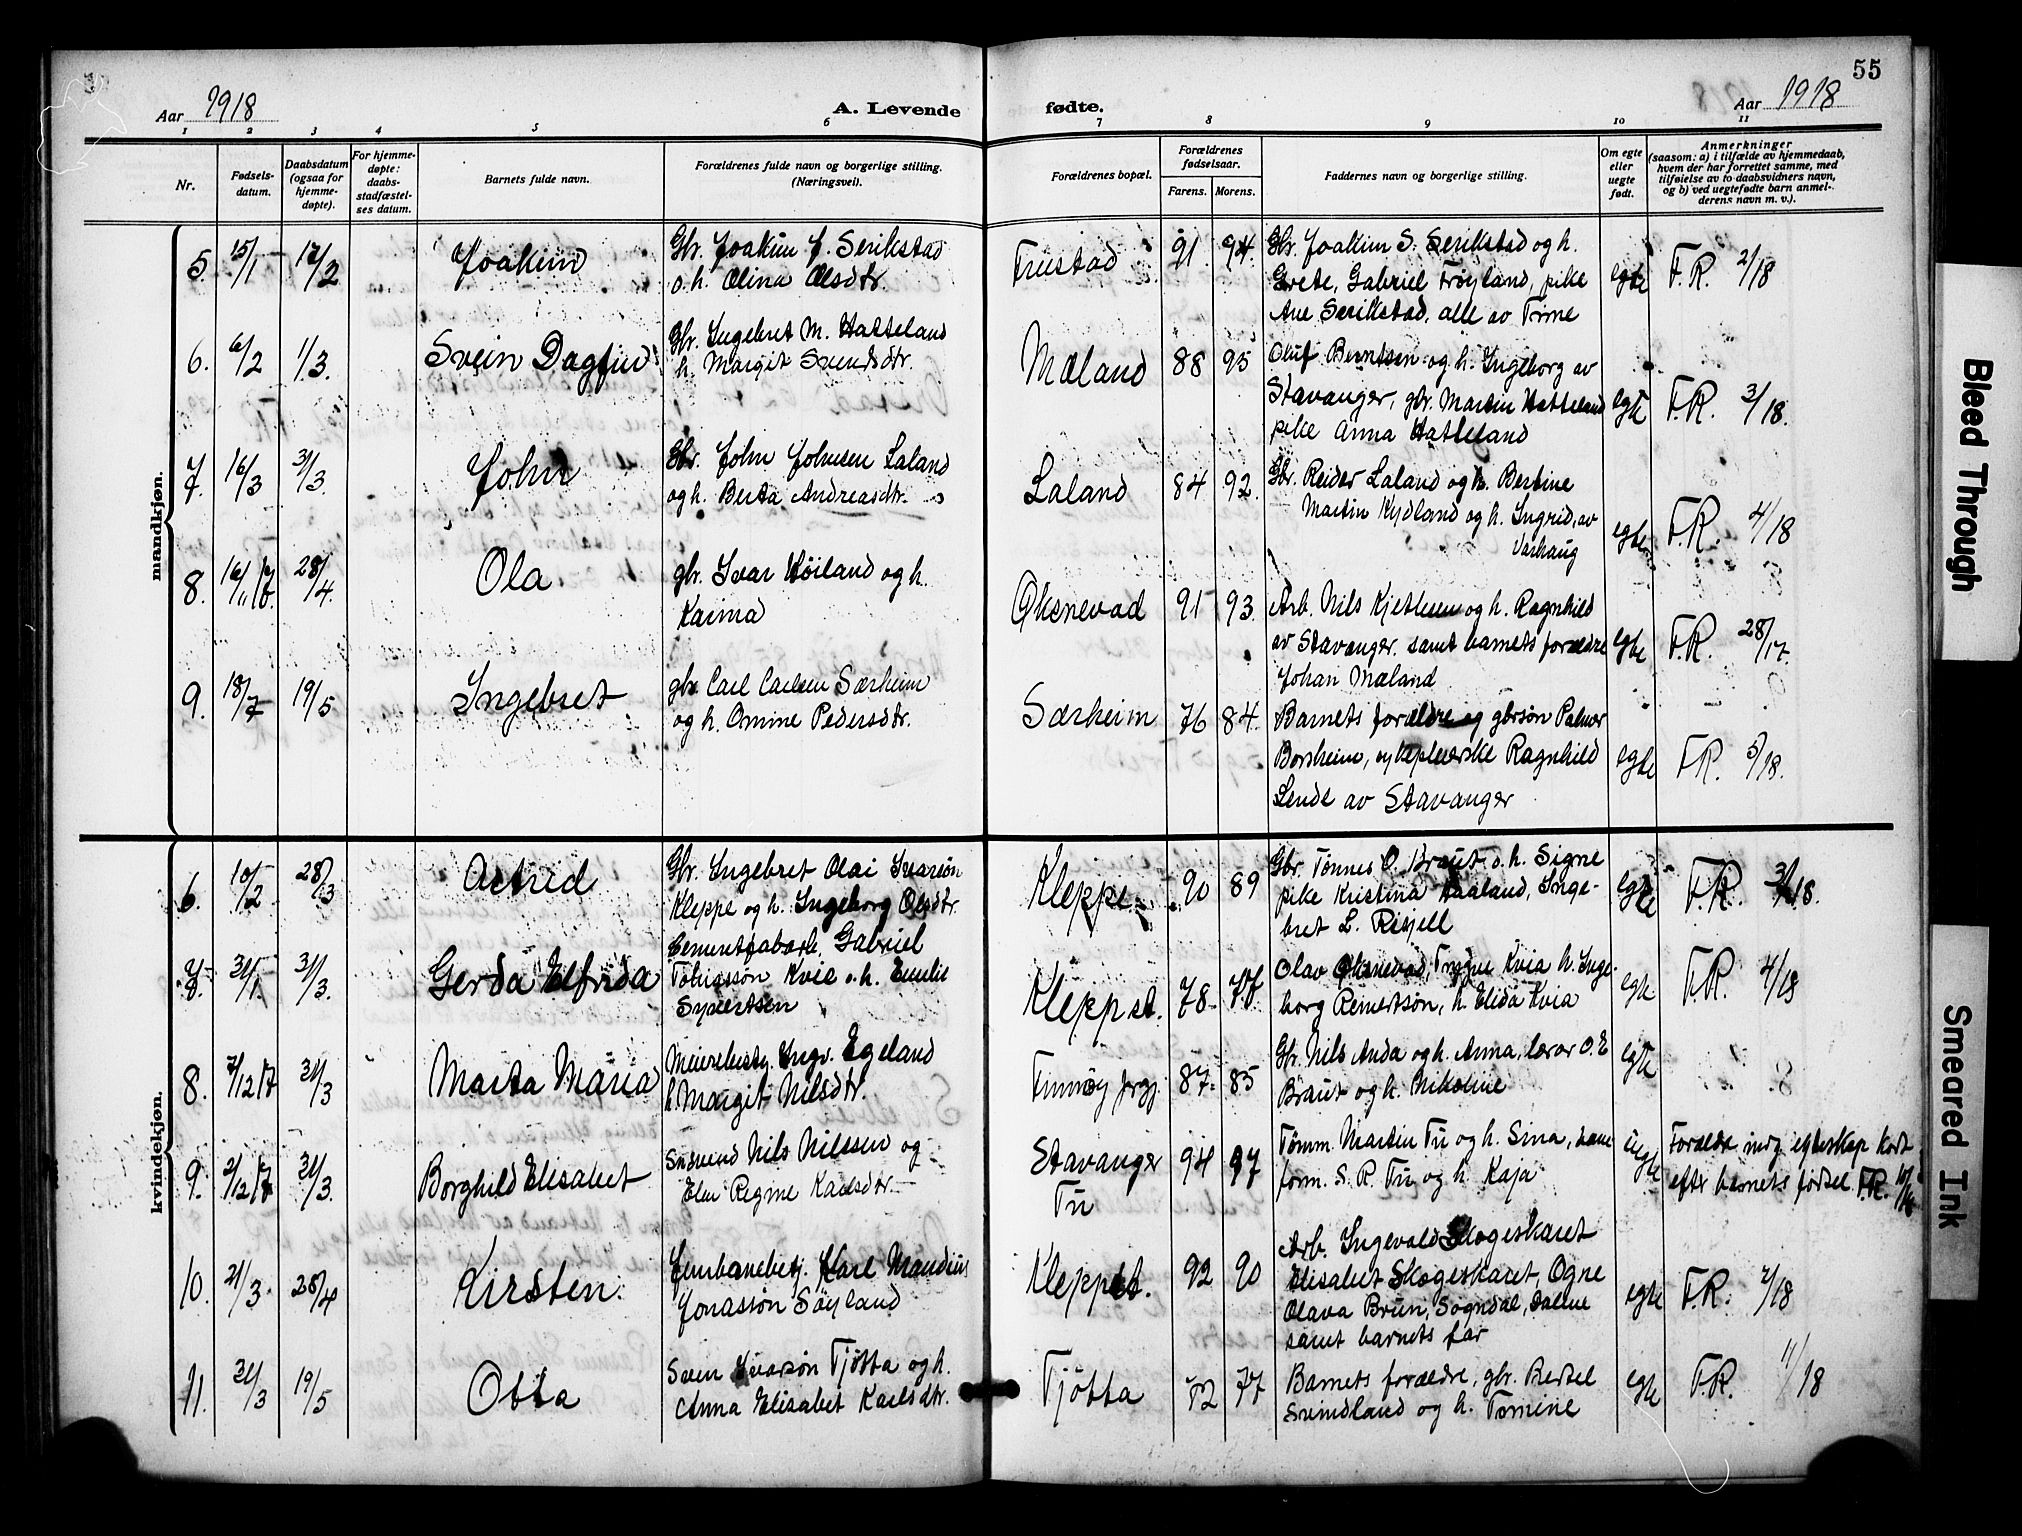 55
Aar 1918
A. Levende
fødte.
Aar 1918
1 2 3 4 5 6 7 8 9 10 11
Nr.
Fødsels-
datum.
Daabsdatum
(ogsaa for
hjemme-
døpte).
For hjemme-
døpte:
daabs-
stadfæstel-
ses datum.
Barnets fulde navn.
Forældrenes fulde navn og borgerlige stilling.
(Næringsvei).
Forældrenes bopæl.
Forældrenes
fødselsaar.
Farens. Morens.
Faddernes navn og borgerlige stilling.
Om egte
eller
uegte
født.
Anmerkninger
(saasom: a) i tilfælde av hjemmedaab,
hvem der har forrettet samme, med
tilføielse av to daabsvidners navn,
og b) ved uegtefødte barn anmel-
derens navn m. v.).
mandkjøn.
5. 15/1 17/2 Joakim
Gbr. Joakim J. Serikstad
o. h. Olina Olsdtr.
Frustad 91 94.
Gbr. Joakim S. Serikstad og h.
Grete, Gabriel Frøyland, pike
Ane Serikstad, alle av Time
egte F.R. 2/18
6. 6/2 1/3. Svein Dagfin
Gbr. Ingebret M. Hatteland
h. Margit Svendsdtr.
Mæland 88 95
Oluf Berntsen og h. Ingeborg av
Stavanger, gbr. Martin Hatteland
pike Anna Hatteland
egte F.R. 3/18.
7. 16/3 31/3. John
Gbr. John Johnsen Laland
og h. Berta Andreasdtr.
Laland 84 92.
Gbr. Reider Laland og h. Bertine
Martin Kydland og h. Ingrid, av
Varhaug
egte F.R. 4/18
8. 16/11 28/4. Ola
gbr. Ivar Høiland og h.
Karina
Øksnevad 91 93.
Arb. Nils Kjetlesen og h. Ragnhild
av Stavanger. samt barnets forældre
Johan Mæland
egte F.R. 28/17.
9. 18/7 19/5 Ingebret
gbr Carl Carlsen Særheim
og h. Omine Pedersdtr.
Særheim 76 84.
Barnets forældre og gbrsøn Palmer
Borsheim, sykepleierske Ragnhild
Lende av Stavanger
egte F.R. 5/18.
kvindekjøn.
6. 10/2 28/3 Astrid
Gbr. Ingebret Olai Ivarsøn
Kleppe og h. Ingeborg Olsdtr.
Kleppe 90 89
Gbr. Tønnes O. Braut o. h. Signe
pike Kristina Haaland, Inge-
bret L. Risjell
egte F.R. 3/18.
31/1. 31/3. Gerda Elfrida
Cementfabark. Gabriel
Tobiassøn Kvie o. h. Emilie
Syvertsen
Klepp st. 78 77.
Olav Øksnevad, Trygve Kvia h. Inge-
borg Reinertsøn, h. Elida Kvia
egte F.R. 4/18
8. 7/12 17 31/3 Marta Maria
Meieribesty. Ingv. Egeland
h. Margit Nilsdtr.
Finnøy prgj. 87 85
Gbr. Nils Anda og h. Anna, lærer O. E
Braut og h. Nikoline
egte
9. 2/12 17 31/3. Borghild Elisabet
Nils Nilssen og
Elen Regine Karlsdtr.
Stavanger
Tu
94 97
Tømm. Martin Tu og h. Sina,
form. S. R. Tu og h. Kaja
uegte
Forældre indg. egteskap kort
efter barnets fødsel. F.R.
10. 21/3 28/4 Kirsten.
Jernbanebetj. Karl Maudius
Jonassøn Søyland
Klepp st. 92 90
Arb. Ingevald Skogeskaret
Elisabet Skogeskaret, Ogne
Olava Brun, Sogndal, Dalene
samt barnets far
egte F.R. 7/18
11. 31/3 19/5 Otta
Sven Ivarsøn Tjøtta og h.
Anna Elisabet Karlsdtr.
Tjøtta 82 77
Barnets forældre, gbr. Bertel
Svindland og h. Tomine
egte F.R. 11/18
Bleed Through
Smeared Ink